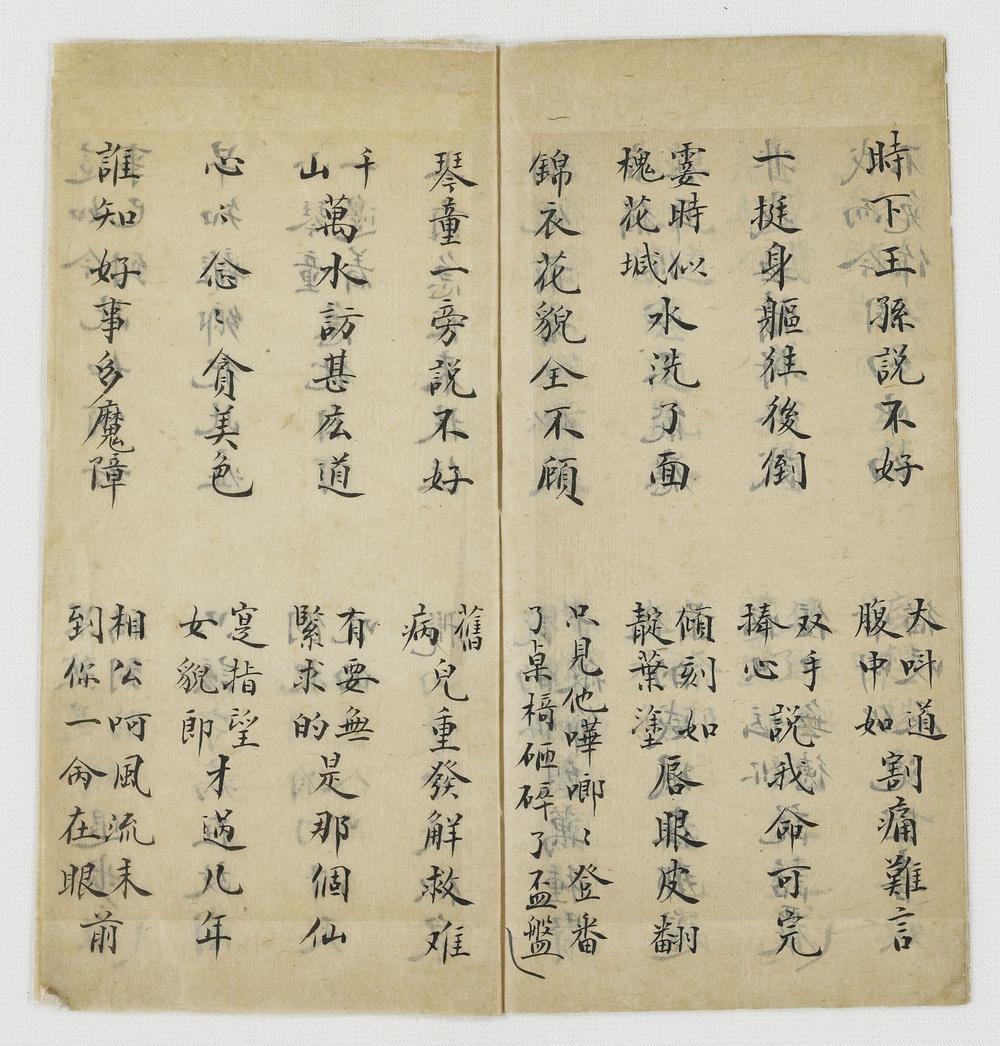 時下王孫說不好
大呌道腹中如割痛難言
一挺身軀往後倒
双手捧心說我命可完
霎時似槐花堿水洗了面
傾刻如靛葉塗唇眼皮翻
錦衣花貌全不顧
只見他嘩啷〻登番了桌椅砸碎了盃盤
琴童一旁說不好
舊病兒重發解救难
千山萬水訪甚庅道
有要無緊求的是那個仙
心〻念〻貪美色
寔指望女貌郎才過几年
誰知好事多魔障
相公呵風流未到你一命在眼前